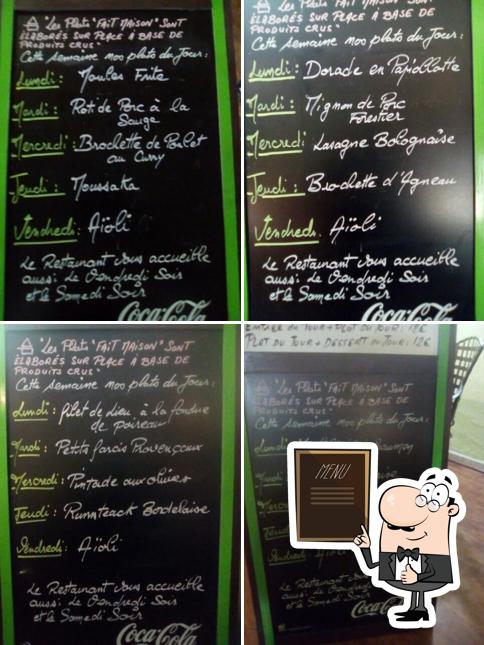 "Les Plats "FAIT MAISON" SONT
ÉLABORÉS SUR PLACE À BASE DE
PRODUITS CRUS"
Cette semaine nos plats du Jour:
Lundi: Moules Frite
Mardi: Roti de Porc à la
Sauge
Mercredi: Brochette de Poulet
au Curry
Jeudi: Moussaka
Vendredi: Aïoli
Le Restaurant vous accueille
aussi: Le Vendredi Soir
et le Samedi Soir
Coca-Cola
"Les Plats "FAIT MAISON" SONT
ÉLABORÉS SUR PLACE À BASE DE
PRODUITS CRUS"
Cette semaine nos plats du Jour:
Lundi: Dorade en Papillotte
Mardi: Mignon de Porc
Forestier
Mercredi Lasagne Bolognaise
Jeudi: Brochette d'Agneau
Vendredi. Aïoli
Le Restaurant vous accueille
aussi: Le Vendredi Soir
et le Samedi Soir
Coca-Cola
"Les Plats "FAIT MAISON" SONT
ÉLABORÉS SUR PLACE À BASE DE
PRODUITS CRUS"
Cette semaine nos plats du Jour:
Lundi: filet de Lieu à la fondue
de poireau
Mardi: Petits farcis Provençaux
Mercredi: Pintade aux olives
Jeudi: Rumsteack Bordelaise
Vendredi: Aïoli
Le Restaurant vous accueille
aussi: Le Vendredi Soir
et le Samedi Soir
Coca-Cola
ENTRÉE DU JOUR + PLAT DU JOUR: 12€
PLAT DU JOUR + DESSERT DU JOUR: 12€
"Les Plats "FAIT MAISON" SONT
ÉLABORÉS SUR PLACE À BASE DE
PRODUITS CRUS"
Cette semaine nos plats du Jour:
Lundi
MENU
Le Restaurant vous
aussi: Le Vendredi Soir
et le Samedi Soir
Coca